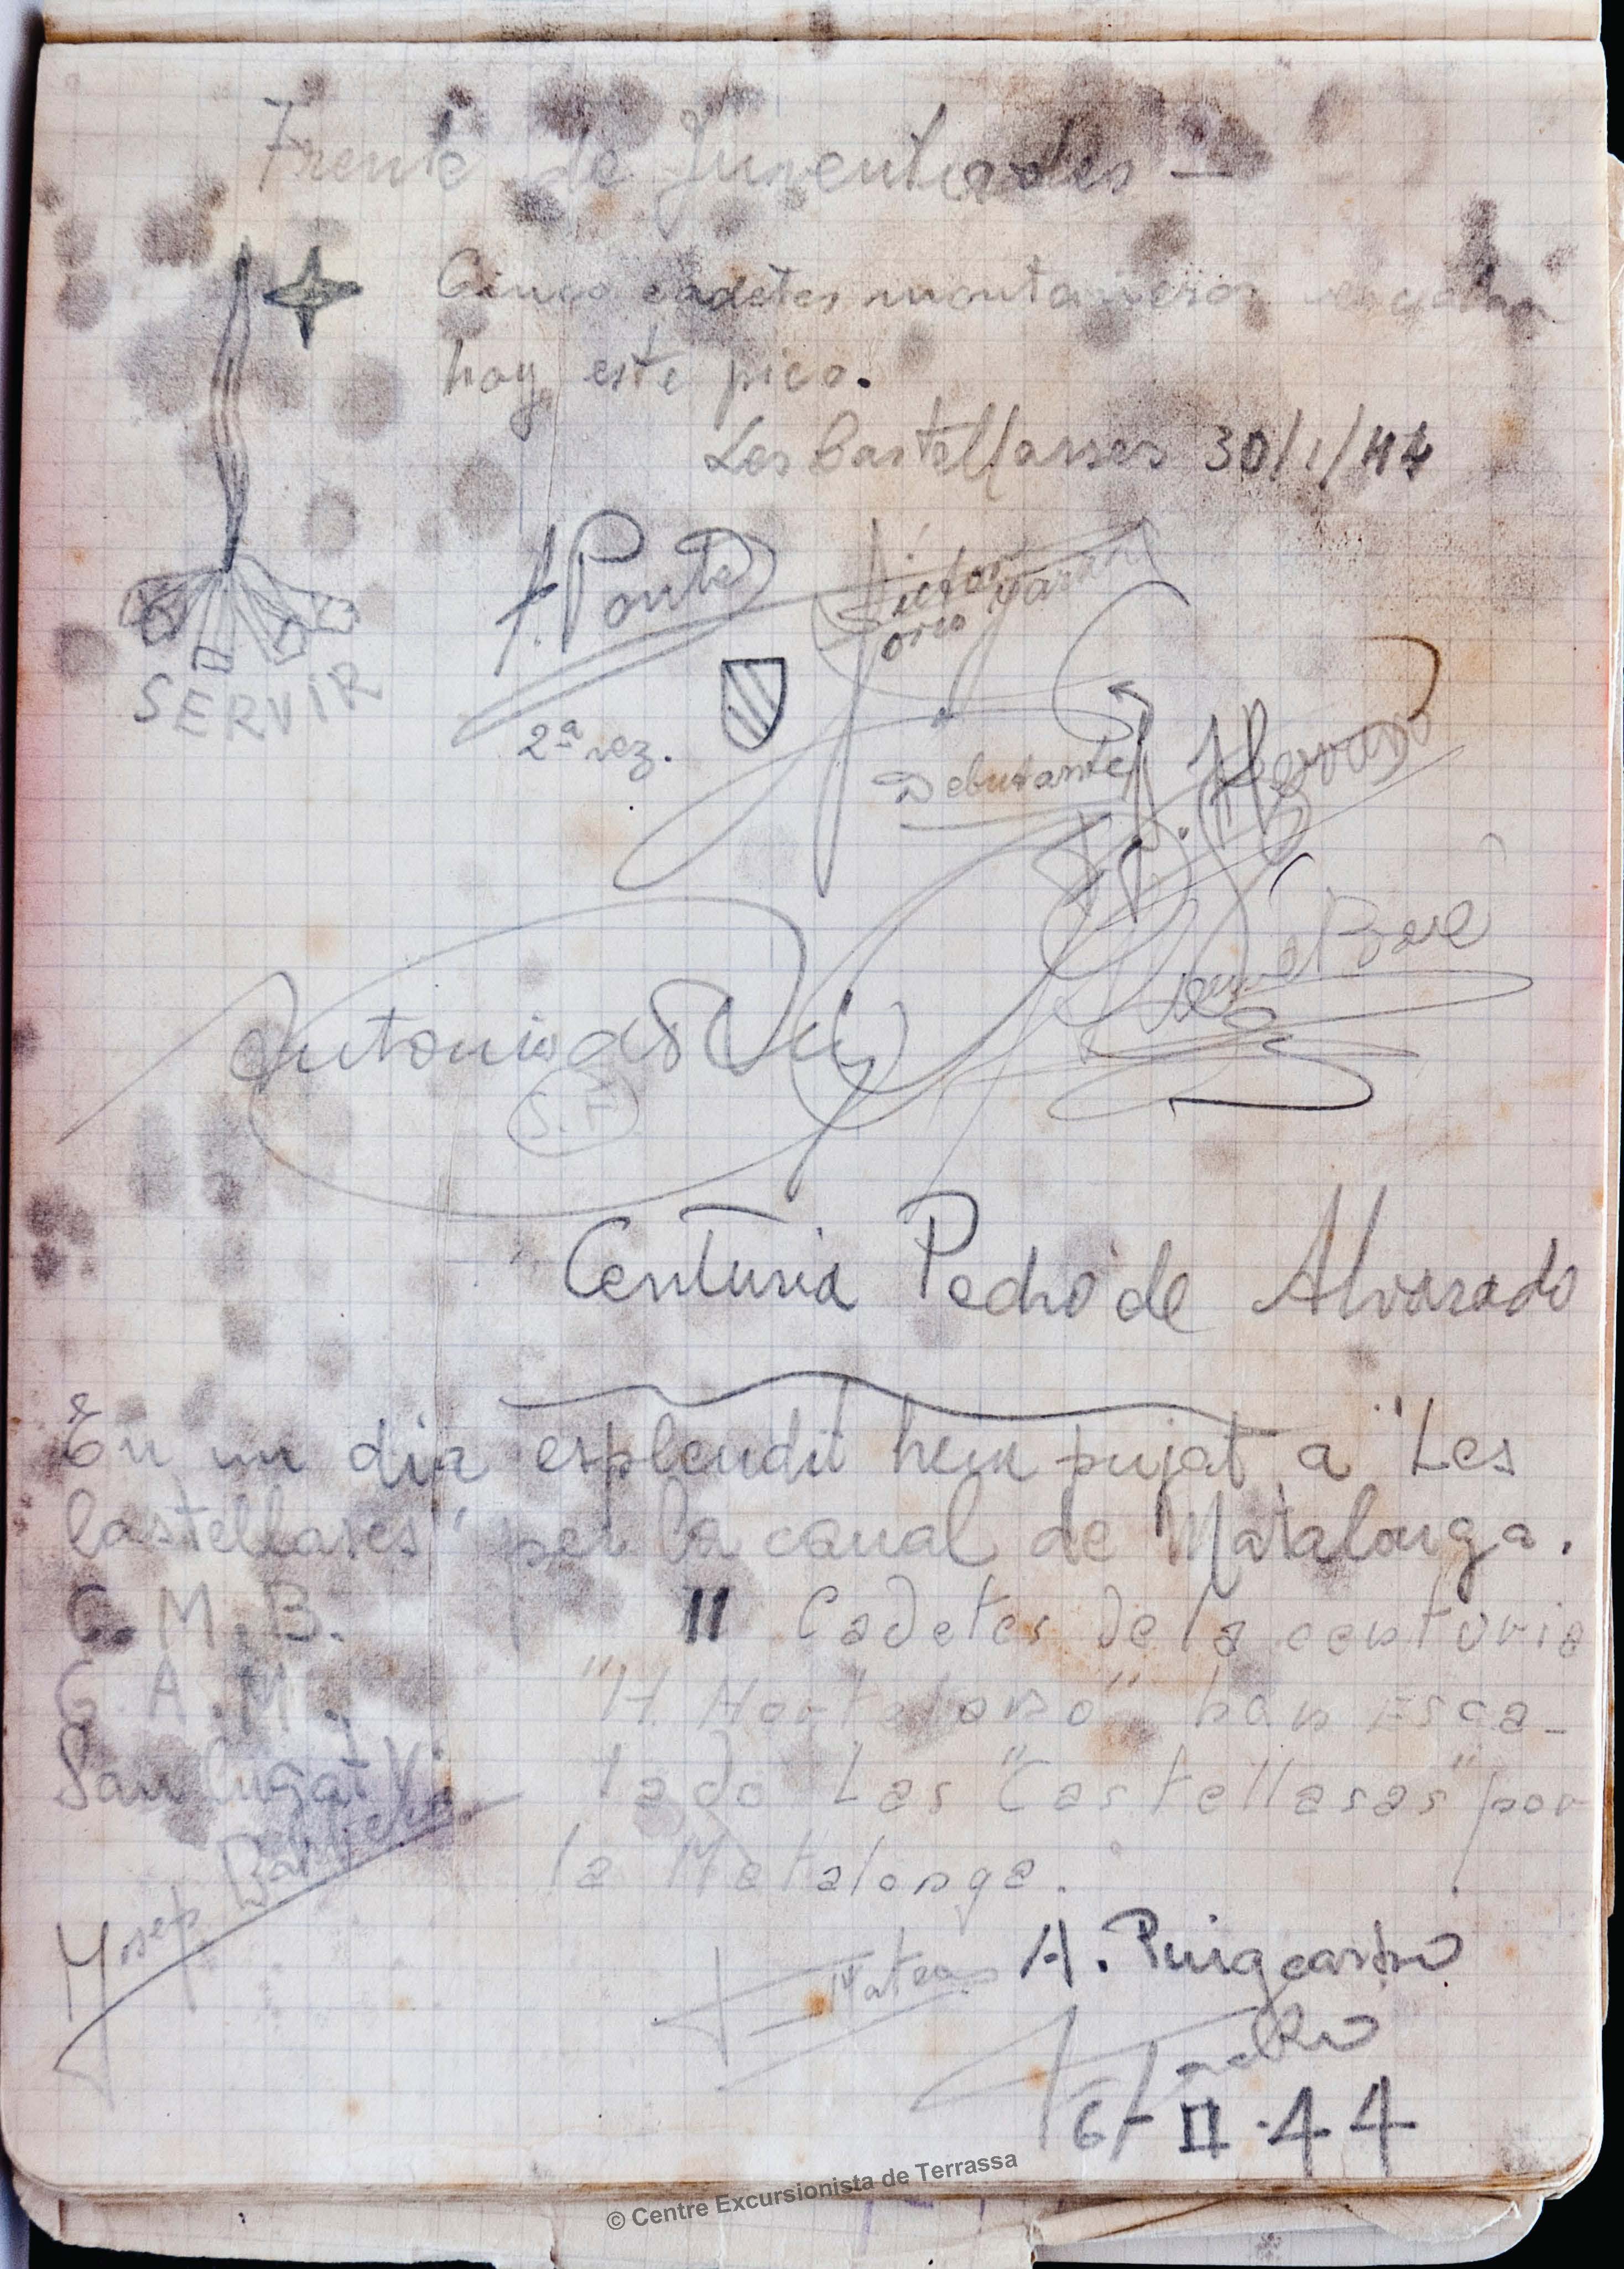 Frente de Juventudes —
Cinco cadetes montañeros
hoy este pico.
Les Castellasses 30/1/44
SERVIR
A. Ponte
Victor
2ª vez.
Debutante
A. Herrero
Antonio
S.F.
Centuria Pedro de Alvarado
En un dia esplendit hem pujat a "Les
Castellases" per la canal de Matalonga.
C. M. B.
G. A. M.
San Cugat V.
Josep
11 Cadetes de la centuria
"H. Hortelano" han Esca-
lado Las "Castellasas" por
la Matalonga.
Mateo
A. Puigcastro
6-II-44
© Centre Excursionista de Terrassa